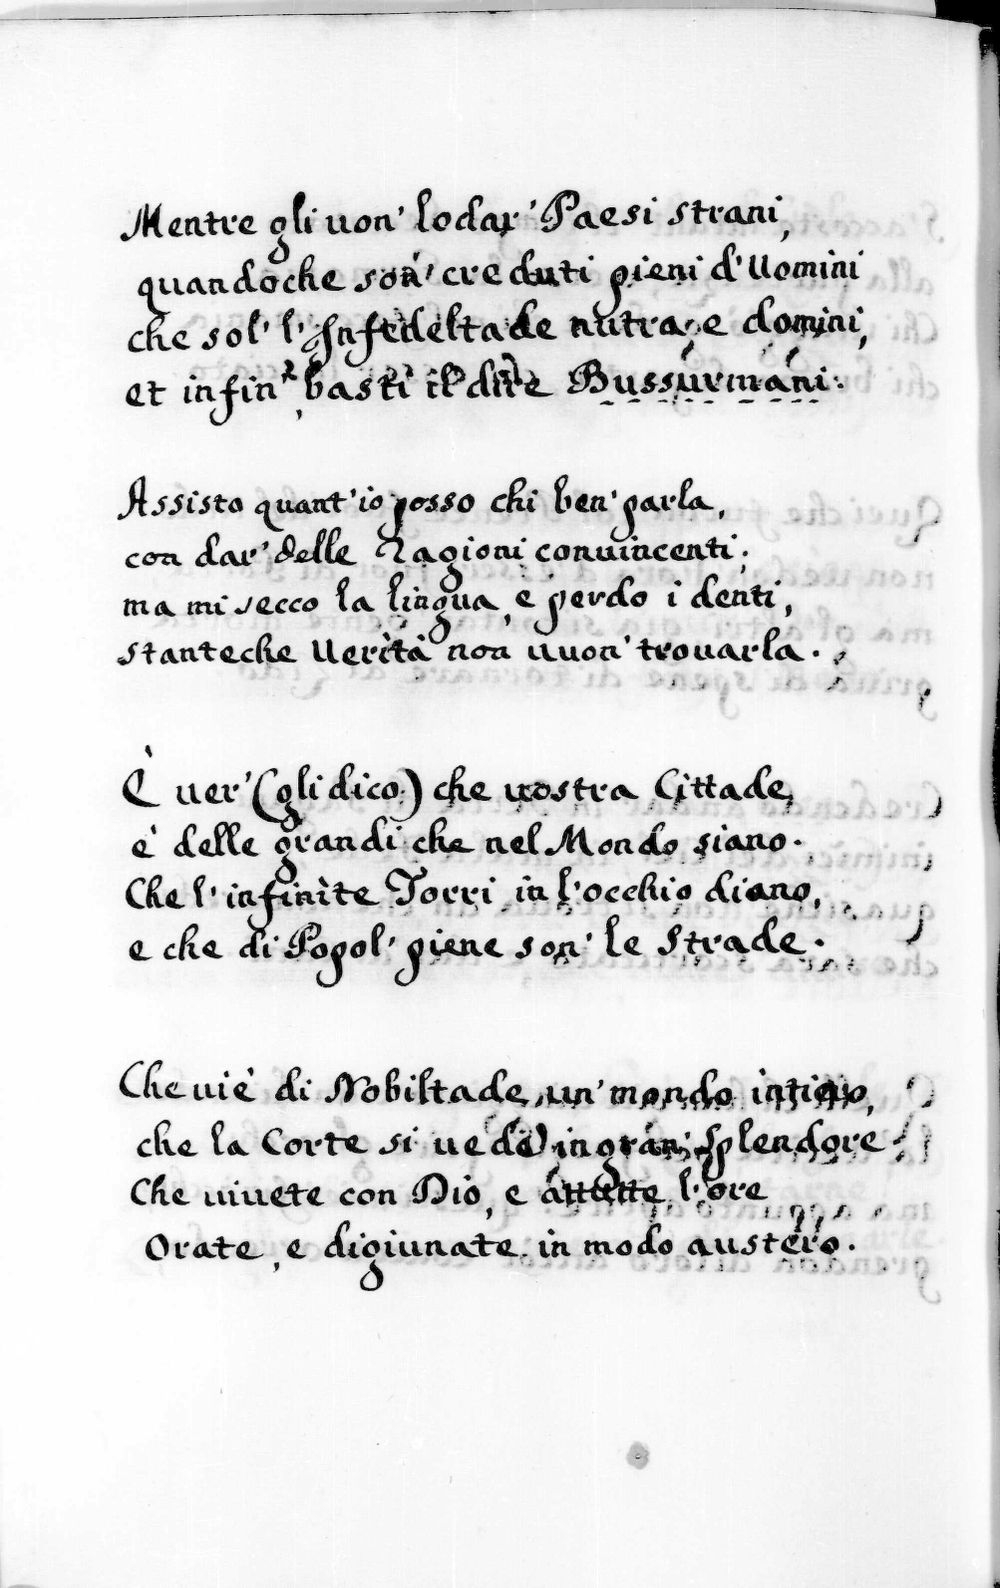 Mentre gli uon' lodar' Paesi strani,
quandoche son' creduti pieni d'Uomini
che sol' l'Infedeltade nutra, e domini,
et infin' basti il dire Bussurmani.
Assisto quant'io posso chi ben' parla,
con dar' delle Ragioni conuincenti;
ma mi secco la lingua, e perdo i denti,
stanteche Uerità non uuon' trouarla.
È uer' (gli dico) che uostra Cittade,
è delle grandi che nel Mondo siano.
Che l'infinite Torri in l'occhio diano,
e che di Popol' piene son' le Strade.
Che uiè di Nobiltade un' mondo intiero,
che la Corte si uede in gran' Splendore
Che uiuete con Dio, e attutte l'ore
Orate, e digiunate in modo austero.